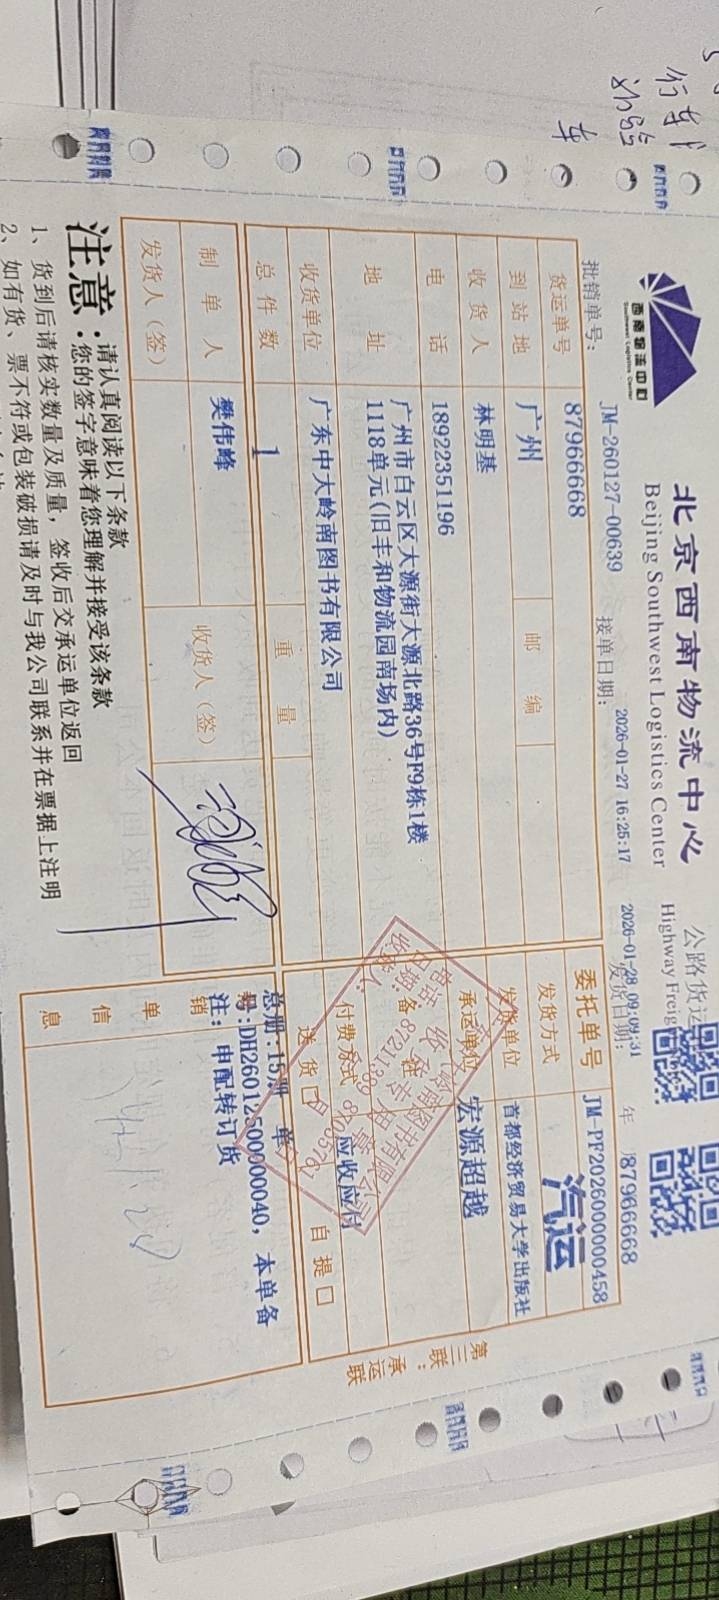 西南物流中心
Southwest Logistics Center
北京西南物流中心
Beijing Southwest Logistics Center
公路货运
Highway Freig
批销单号：JM-260127-00639
接单日期：2026-01-27 16:25:17
发货日期：2026-01-28 09:09:31
年
87966668
货运单号 87966668
委托单号 JM-PF2026000000458
到站地 广州 邮编
发货方式 汽运
收货人 林明基
发货单位 首都经济贸易大学出版社
电话 18922351196
承运单位 宏源超越
地址 广州市白云区大源街大源北路36号F9栋1楼
1118单元(旧丰和物流园南场内)
备
收货单位 广东中大岭南图书有限公司
付费方式 应收应付
总件数 1 重量
送货口 自提口
制单人 樊伟峰 收货人（签）
发货人（签）
总册:15册 单
号:DH26012500000040, 本单备
注: 申配转订货
销单信息
第三联：承运联
注意：
请认真阅读以下条款
您的签字意味着您理解并接受该条款
1、货到后请核实数量及质量，签收后交承运单位返回
2、如有货、票不符或包装破损请及时与我公司联系并在票据上注明